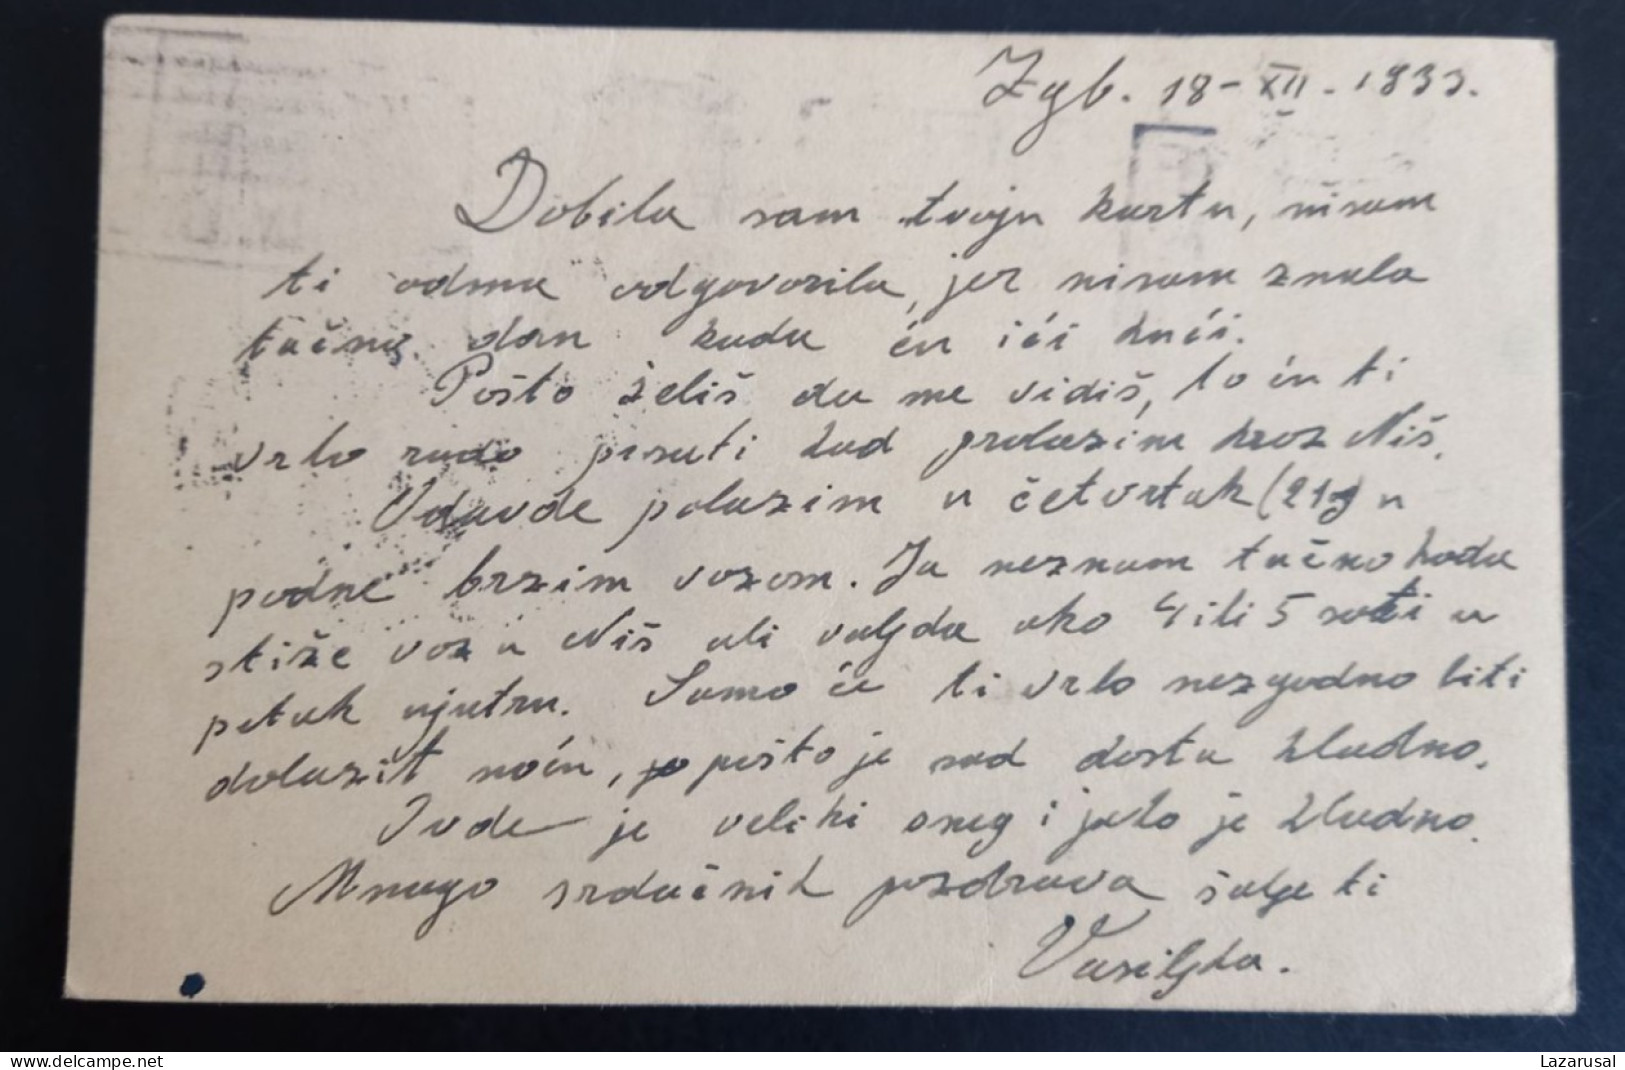 Zgb. 18-XII.1933.
Dobila sam tvoju kartu, nisam
ti odma odgovorila, jer nisam znala
tačno dan kada ću ići kući.
Pošto želiš da me vidiš, to ću ti
vrlo rado pisati kad prolazim kroz Niš.
Odavde polazim u četvrtak (21) u
podne brzim vozom. Ja neznam tačno kada
stiže voz u Niš ali valjda oko 4 ili 5 sati u
petak ujutru. Samo će ti vrlo nezgodno biti
dolazit noću, pošto je sad dosta hladno.
Ovde je veliki sneg i jako je hladno.
Mnogo srdačnih pozdrava šalje ti
Vasiljka.
www.delcampe.net
Lazarusal